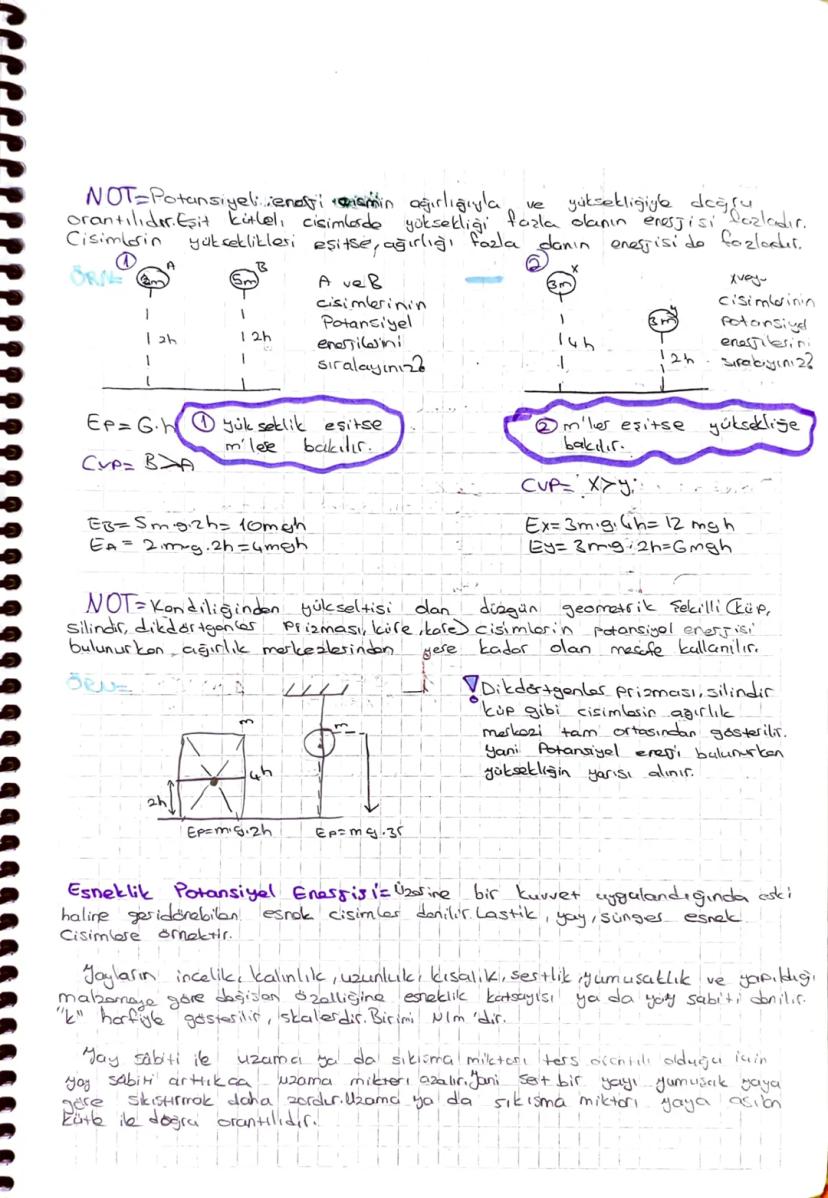 NOT=Potansiyel enerji cismin ağırlığıyla ve yüksekliğiyle doğru
orantılıdır.Eşit kütleli cisimlerde yüksekliği fazla olanın enerjisi fazladır.
Cisimlerin yükseklikleri eşitse, ağırlığı fazla olanın enerjisi de fazladır.
ÖRN= ① 2m A 5m B 2h 2h
A ve B
cisimlerinin
Potansiyel
enerjilerini
sıralayınız?
② 3m X 3m y 4h 2h
x ve y
cisimlerinin
potansiyel
enerjilerini
sıralayınız?
Ep=G.h
① yükseklik eşitse
m'lere bakılır.
Cvp= B>A
② m'ler eşitse yüksekliğe
bakılır.
CVP= X>y
EB=5m.g.2h=10mgh
EA=2.m.g.2h=4mgh
Ex=3m.g.4h=12 mgh
Ey=3m.g.2h=6mgh
NOT=Kendiliğinden yükseltisi olan düzgün geometrik şekilli (küp,
silindir, dikdörtgenler prizması, küre, kare) cisimlerin potansiyel enerjisi
bulunurken ağırlık merkezlerinden yere kadar olan mesafe kullanılır.
ÖRN=
m
4h
2h
Ep=m.g.2h
m
Ep=mg.3r
! Dikdörtgenler prizması, silindir
küp gibi cisimlerin ağırlık
merkezi tam ortasından gösterilir.
Yani Potansiyel enerji bulunurken
yüksekliğin yarısı alınır.
Esneklik Potansiyel Enerjisi= Üzerine bir kuvvet uygulandığında eski
haline geri dönebilen esnek cisimler denilir. Lastik, yay, sünger esnek
cisimlere örnektir.
Yayların incelik, kalınlık, uzunluk, kısalık, sertlik, yumuşaklık ve yapıldığı
malzemeye göre değişen özelliğine esneklik katsayısı ya da yay sabiti denilir.
"k" harfiyle gösterilir, skalerdir. Birimi N/m 'dir.
Yay sabiti ile uzama ya da sıkışma miktarı ters orantılı olduğu için
yay sabiti arttıkca uzama miktarı azalır. Yani sert bir yayı yumuşak yaya
göre sıkıştırmak daha zordur. Uzama ya da sıkışma miktarı yaya asılan
kütle ile doğru orantılıdır.